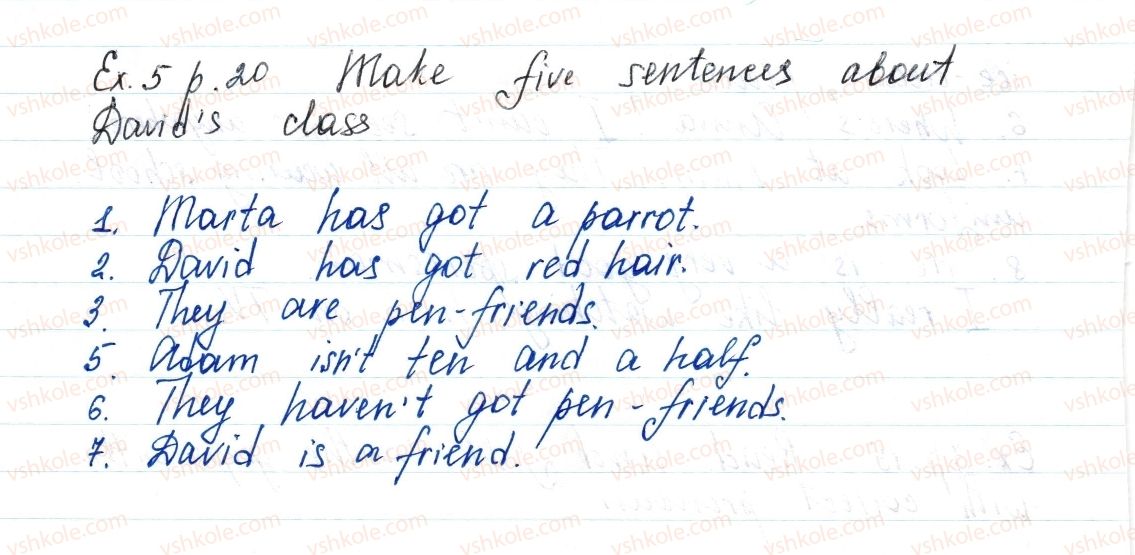 Ex. 5 p. 20 Make five sentences about
David's class
1. Marta has got a parrot.
2. David has got red hair.
3. They are pen-friends.
5. Adam isn't ten and a half.
6. They haven't got pen-friends.
7. David is a friend.
vshkole.com